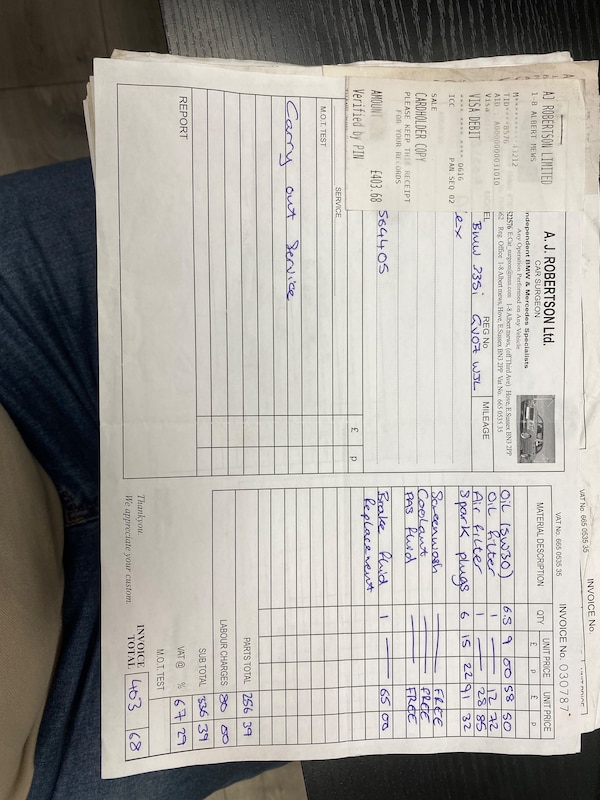 AJ ROBERTSON LIMITED
1-8 ALBERT MEWS
AID A0000000031010
Visa
VISA DEBIT
0616
ICC PAN SEQ 02
SALE
CARDHOLDER COPY
PLEASE KEEP THIS RECEIPT
FOR YOUR RECORDS
AMOUNT £403.68
Verified by PIN
A. J. ROBERTSON Ltd.
CAR SURGEON
ndependent BMW & Mercedes Specialists
Any Operation Performed on Any Vehicle
1-8 Albert mews, (off Third Ave) Hove, E.Sussex BN3 2PP
Reg. Office: 1-8 Albert mews, Hove, E.Sussex BN3 2PP Vat No. 665 0535 35
EL REG No MILEAGE
BMW 335i GV07 WJL
ex
564405
£ p
SERVICE
M.O.T. TEST
Carry out Service
REPORT
INVOICE No.
VAT No. 665 0535 35
VAT No. 665 0535 35 INVOICE No. 030787
MATERIAL DESCRIPTION QTY UNIT PRICE UNIT PRICE
£ p £ p
Oil (5W30) 6.5 9 00 58 50
Oil filter 1 12 72
Air filter 1 28 85
Spark plugs 6 15 22 91 32
Screenwash FREE
Coolant FREE
PAS fluid FREE
Brake fluid 1 65 00
Replacement
PARTS TOTAL 256 39
LABOUR CHARGES 80 00
SUB TOTAL 336 39
VAT @ % 67 29
M.O.T. TEST
INVOICE TOTAL 403 68
Thankyou
We appreciate your custom.